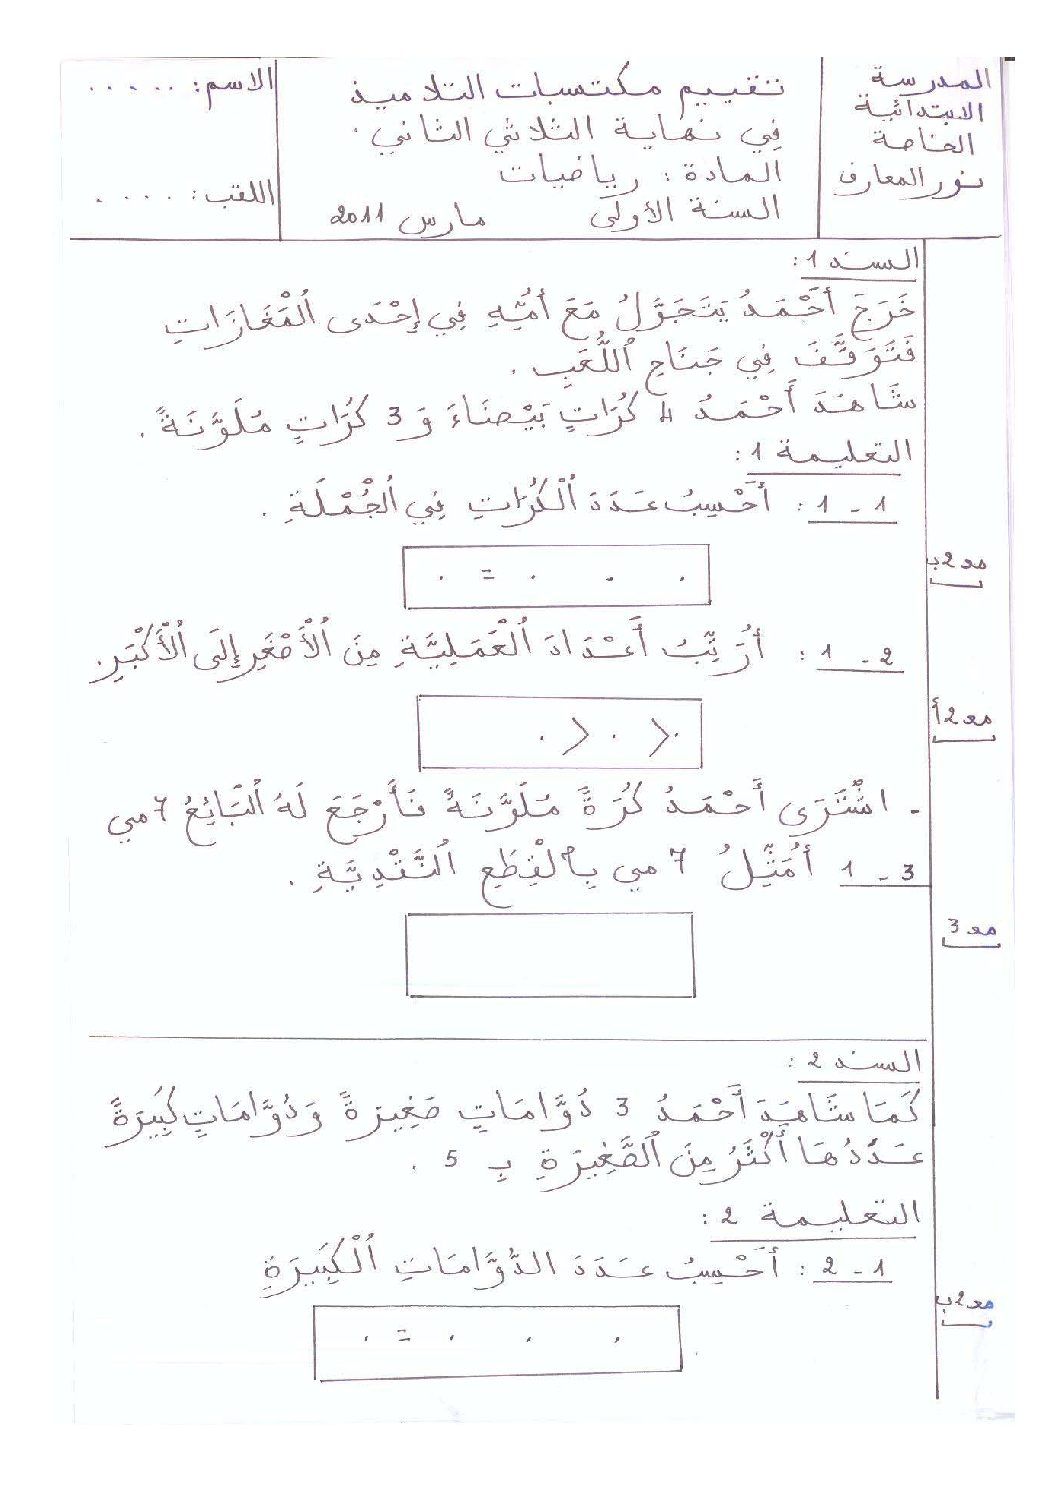 المدرسة
الابتدائية
الخاصة
نور المعارف
تقييم مكتسبات التلاميذ
في نهاية الثلاثي الثاني .
المادة : رياضيات
السنة الأولى مارس 2011
الاسم: . . . . .
اللقب: . . . . .
السند 1 :
خَرَجَ أَحْمَدُ يَتَجَوَّلُ مَعَ أُمِّهِ فِي إِحْدَى الْمَغَازَاتِ
فَتَوَقَّفَ فِي جَنَاحِ اللُّعَبِ .
شَاهَدَ أَحْمَدُ 4 كُرَاتٍ بَيْضَاءَ وَ 3 كُرَاتٍ مُلَوَّنَةً .
التعليمة 1 :
1 - 1 : أَحْسِبُ عَدَدَ الْكُرَاتِ فِي الْجُمْلَةِ .
. . . = .
مع 2ب
1 - 2 : أُرَتِّبُ أَعْدَادَ الْعَمَلِيَّةِ مِنَ الْأَصْغَرِ إِلَى الْأَكْبَرِ.
. < . < .
مع 2أ
- اشْتَرَى أَحْمَدُ كُرَةً مُلَوَّنَةً فَأَرْجَعَ لَهُ الْبَائِعُ 7 مي
1 - 3 أُمَثِّلُ 7 مي بِالْقِطَعِ النَّقْدِيَّةِ .
مع 3
السند 2 :
كَمَا شَاهَدَ أَحْمَدُ 3 دُوَّامَاتٍ صَغِيرَةً وَدُوَّامَاتٍ كَبِيرَةً
عَدَدُهَا أَكْثَرُ مِنَ الصَّغِيرَةِ بِ 5 .
التعليمة 2 :
2 - 1 : أَحْسِبُ عَدَدَ الدُّوَّامَاتِ الْكَبِيرَةِ
. . . = .
مع 2ب